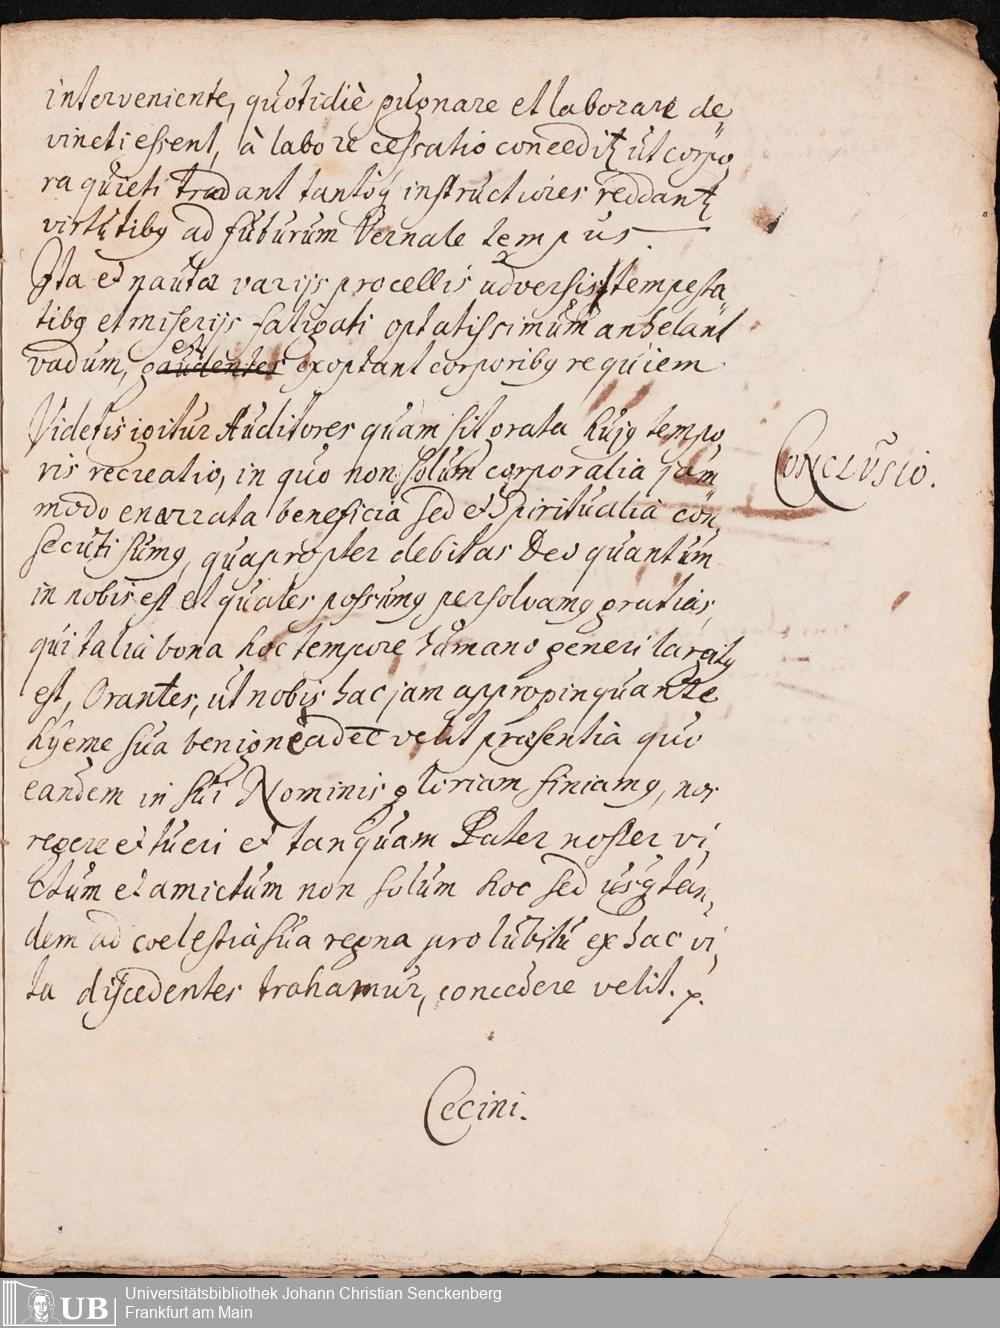 interveniente, quotidiè pugnare et laborare de,
vincti essent, à labore cessatio conceditʒ ut corpo,
ra quieti tradant tantoq́ʒ instructiores reddantʒ
virtutibꝰ ad futurum Vernale tempus.
Ita et nautæ varijs procellis adversis tempesta,
tibꝰ et miserijs fatigati optatissimum anhelant
vadum, gaudentes et exoptant corporibꝰ requiem
Videtis igitur Auditores quam sit grata hujꝰ tempo,
ris recreatio, in quo non solum corporalia jam
modo enarrata beneficia sed et Spiritualia con,
secuti sumꝰ, quapropter debitas Deo quantum
in nobis est et quales possumꝰ persolvamꝰ gratias,
qui talia bona hoc tempore humano generi largitꝰ
est, Orantes, ut nobis hac jam appropinquante
hyeme sua benigne adee velit præsentia quo
eandem in sui Nominis gloriam finiamꝰ, nos
regere et tueri et tanquam Pater noster vi,
ctum et amictum non solum hoc sed usqʒ tan,
dem ad coelestia sua regna pro lubitu ex hac vi,
ta discedentes trahamur, concedere velit. p.
CONCLUSIO.
Cecini.
UB
Universitätsbibliothek Johann Christian Senckenberg
Frankfurt am Main